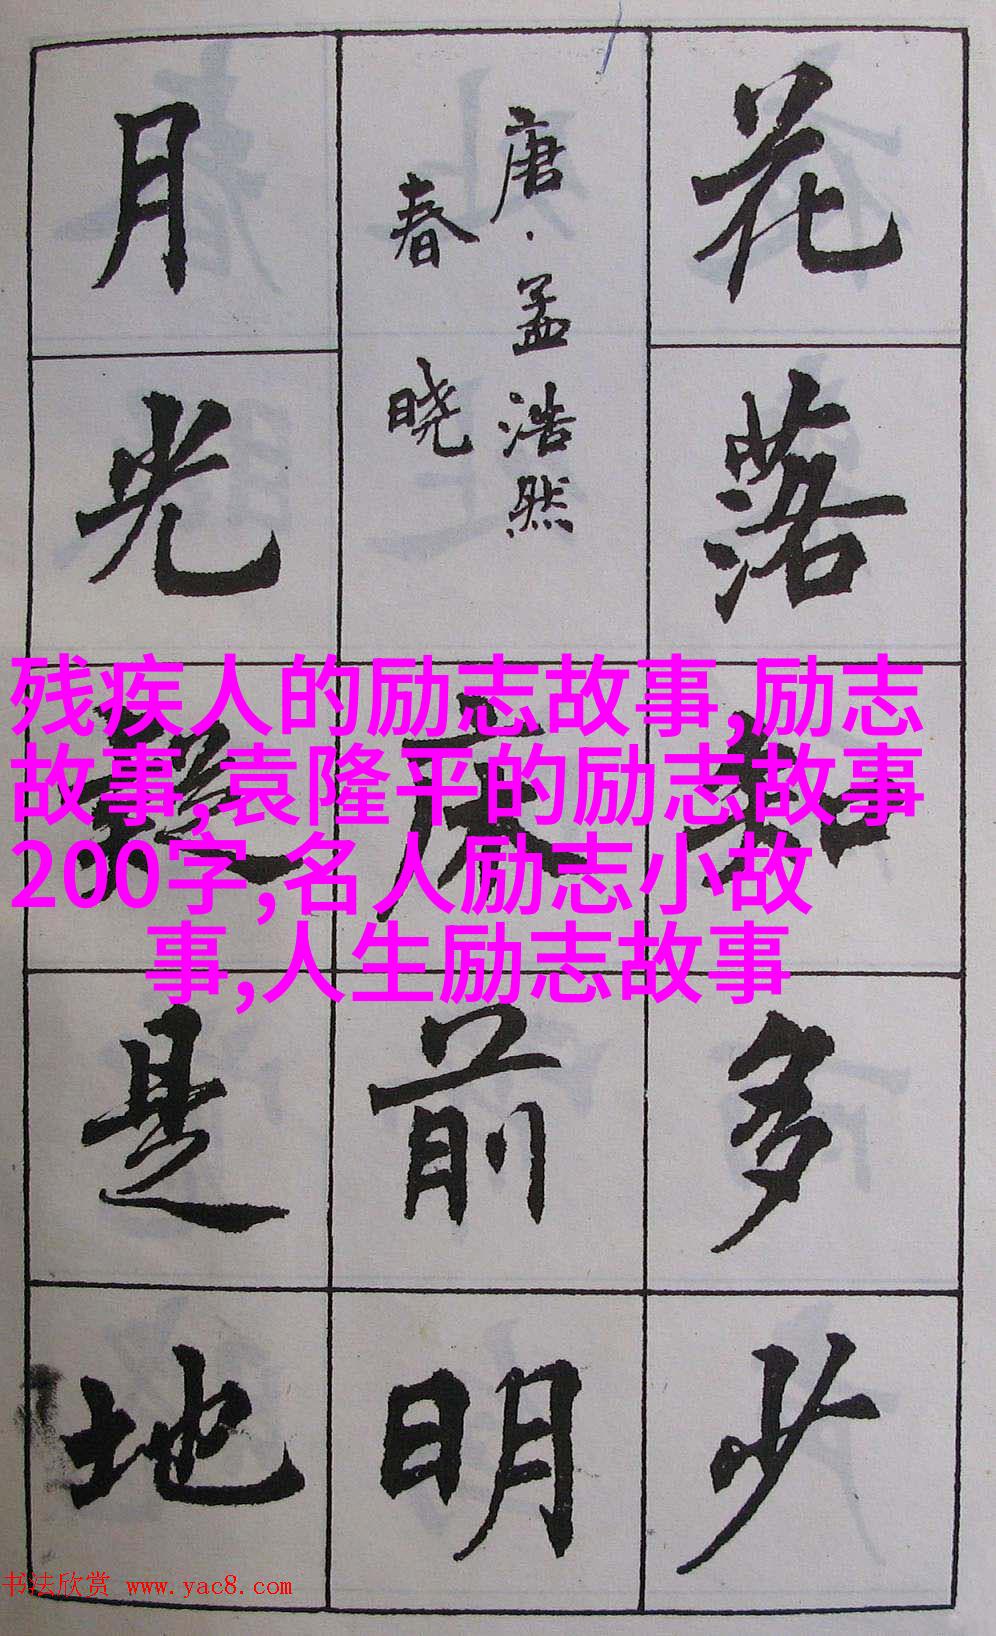 花落知多少
唐·孟浩然
春晓
床前明
月光疑是地
残疾人的励志故事,励志
故事,袁隆平的励志故事
200字,名人励志小故
事,人生励志故事
书法欣赏 www.yac8.com